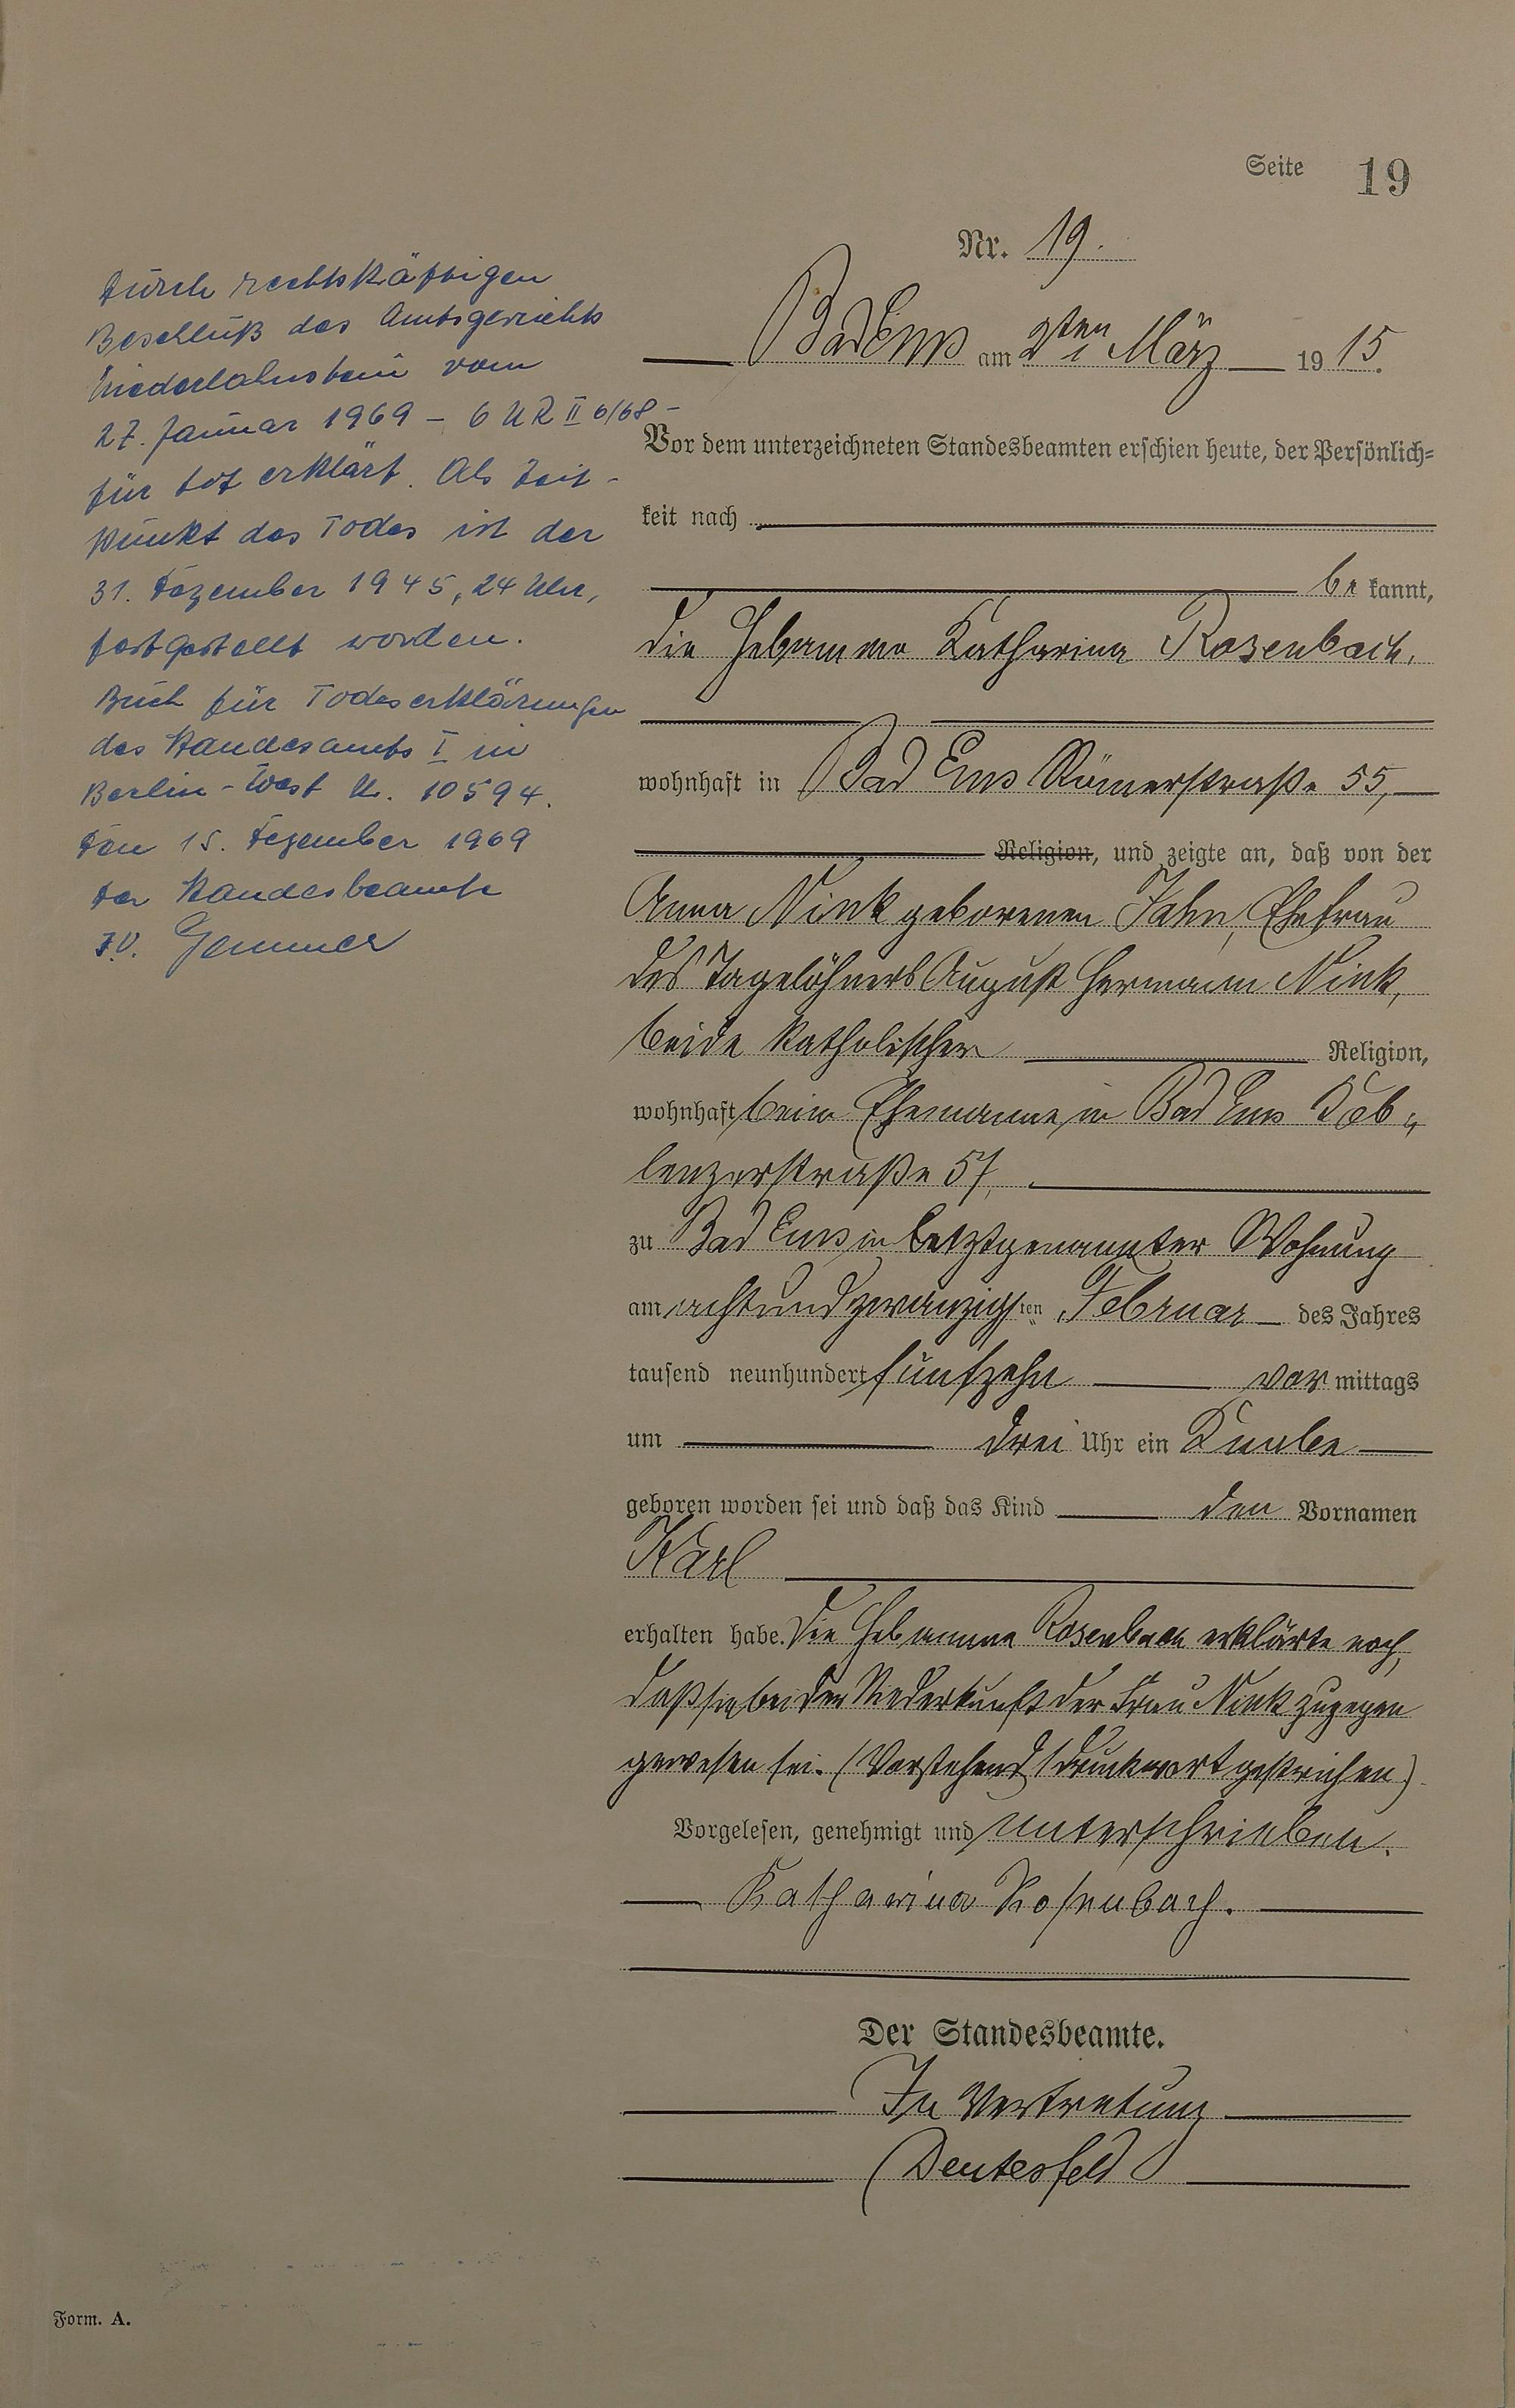 Seite 19
Nr. 19.
Bad Ems am 2ten März 1915.
Vor dem unterzeichneten Standesbeamten erschien heute, der Persönlich=
keit nach
be kannt,
die Hebamme Katharina Rosenbach,
wohnhaft in Bad Ems Römerstraße 55,
Religion, und zeigte an, daß von der
Anna Nink geborenen Jahn, Ehefrau
des Tagelöhners August Hermann Nink,
beide katholischer Religion,
wohnhaft beim Ehemanne, in Bad Ems Cob„
lenzerstraße 57,
zu Bad Ems in letztgenannter Wohnung
am achtundzwanzigsten Februar des Jahres
tausend neunhundert fünfzehn vor mittags
um drei Uhr ein Knabe
geboren worden sei und daß das Kind den Vornamen
Karl
erhalten habe. Die Hebamme Rosenbach erklärte noch,
daß sie bei der Niederkunft der Frau Nink zugegen
gewesen sei. (Vorstehend 1 Druckwort gestrichen)
Vorgelesen, genehmigt und unterschrieben.
Katharina Rosenbach.
Der Standesbeamte.
In Vertretung
Deutesfeld
Durch rechtskräftigen
Beschluß des Amtsgerichts
Niederlahnstein vom
27. Januar 1969 – 6 UR II 6/68 –
für tot erklärt. Als Zeit-
punkt des Todes ist der
31. Dezember 1945, 24 Uhr,
festgestellt worden.
Buch für Todeserklärungen
des Standesamts I in
Berlin-West Nr. 10594.
Den 15. Dezember 1969
Der Standesbeamte
I.V. Gemmer
Form. A.